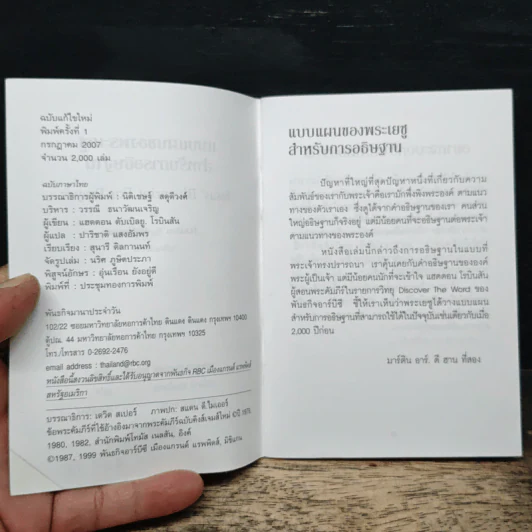 ฉบับแก้ไขใหม่
พิมพ์ครั้งที่ 1
กรกฎาคม 2007
จำนวน 2,000 เล่ม
ฉบับภาษาไทย
บรรณาธิการผู้พิมพ์ : นิติเชษฐ์ สตุดีวงศ์
บริหาร : วรรณี ธนาวัฒนเจริญ
ผู้เขียน : แฮดดอน ดับเบิลยู. โรบินสัน
ผู้แปล : ปาริชาติ แสงอัมพร
เรียบเรียง : สุนารี ดิลกานนท์
จัดรูปเล่ม : นริศ ภูษิตประภา
พิสูจน์อักษร : อุ่นเรือน ยังอยู่ดี
พิมพ์ที่ : ประชุมทองการพิมพ์
พันธกิจมานาประจำวัน
102/22 ซอยมหาวิทยาลัยหอการค้าไทย ดินแดง ดินแดง กรุงเทพฯ 10400
ตู้ปณ. 44 มหาวิทยาลัยหอการค้าไทย กรุงเทพฯ 10325
โทร./โทรสาร 0-2692-2476
email address : thailand@rbc.org
หนังสือนี้สงวนลิขสิทธิ์และได้รับอนุญาตจากพันธกิจ RBC เมืองแกรนด์ แรพิดส์
สหรัฐอเมริกา
บรรณาธิการ : เดวิด สเปอร์ ภาพปก: สแตน ดี.ไมเออร์
ข้อพระคัมภีร์ที่ใช้อ้างอิงมาจากพระคัมภีร์ฉบับคิงส์เจมส์ใหม่ ©ปี 1979,
1980, 1982, สำนักพิมพ์โทมัส เนลสัน, อิงค์
©1987, 1999 พันธกิจอาร์บีซี เมืองแกรนด์ แรพพิดส์, มิชิแกน
แบบแผนของพระเยซู
สำหรับการอธิษฐาน
ปัญหาที่ใหญ่ที่สุดปัญหาหนึ่งที่เกี่ยวกับความ
สัมพันธ์ของเรากับพระเจ้าคือเรามักพึ่งพิงพระองค์ ตามแนว
ทางของตัวเราเอง ซึ่งดูได้จากคำอธิษฐานของเรา คนส่วน
ใหญ่อธิษฐานก็จริงอยู่ แต่มีน้อยคนที่จะอธิษฐานต่อพระเจ้า
ตามแนวทางของพระองค์
หนังสือเล่มนี้กล่าวถึงการอธิษฐานในแบบที่
พระเจ้าทรงปรารถนา เราคุ้นเคยกับคำอธิษฐานขององค์
พระผู้เป็นเจ้า แต่มีน้อยคนนักที่จะเข้าใจ แฮดดอน โรบินสัน
ผู้สอนพระคัมภีร์ในรายการวิทยุ Discover The Word ของ
พันธกิจอาร์บีซี ชี้ให้เราเห็นว่าพระเยซูได้วางแบบแผน
สำหรับการอธิษฐานที่สามารถใช้ได้ในปัจจุบันเช่นเดียวกับเมื่อ
2,000 ปีก่อน
มาร์ติน อาร์. ดี ฮาน ที่สอง